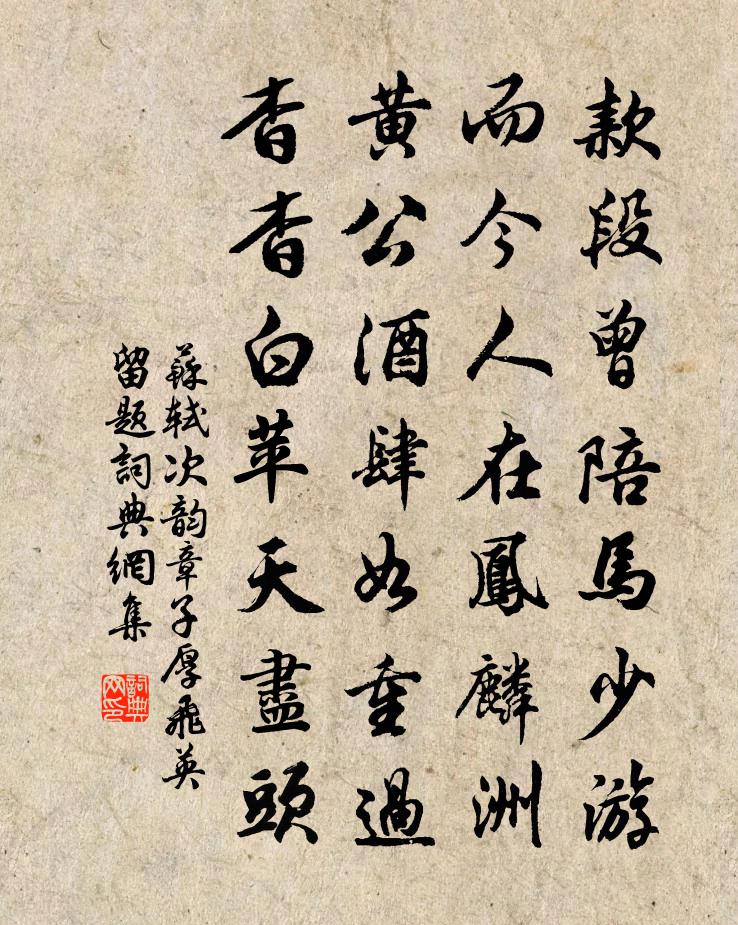 款段曾陪馬少游
而今人在鳳麟洲
黄公酒肆如重過
杳杳白苹天盡頭
蘇軾次韵章子厚飛英
留題詞典網集
詞典
网印